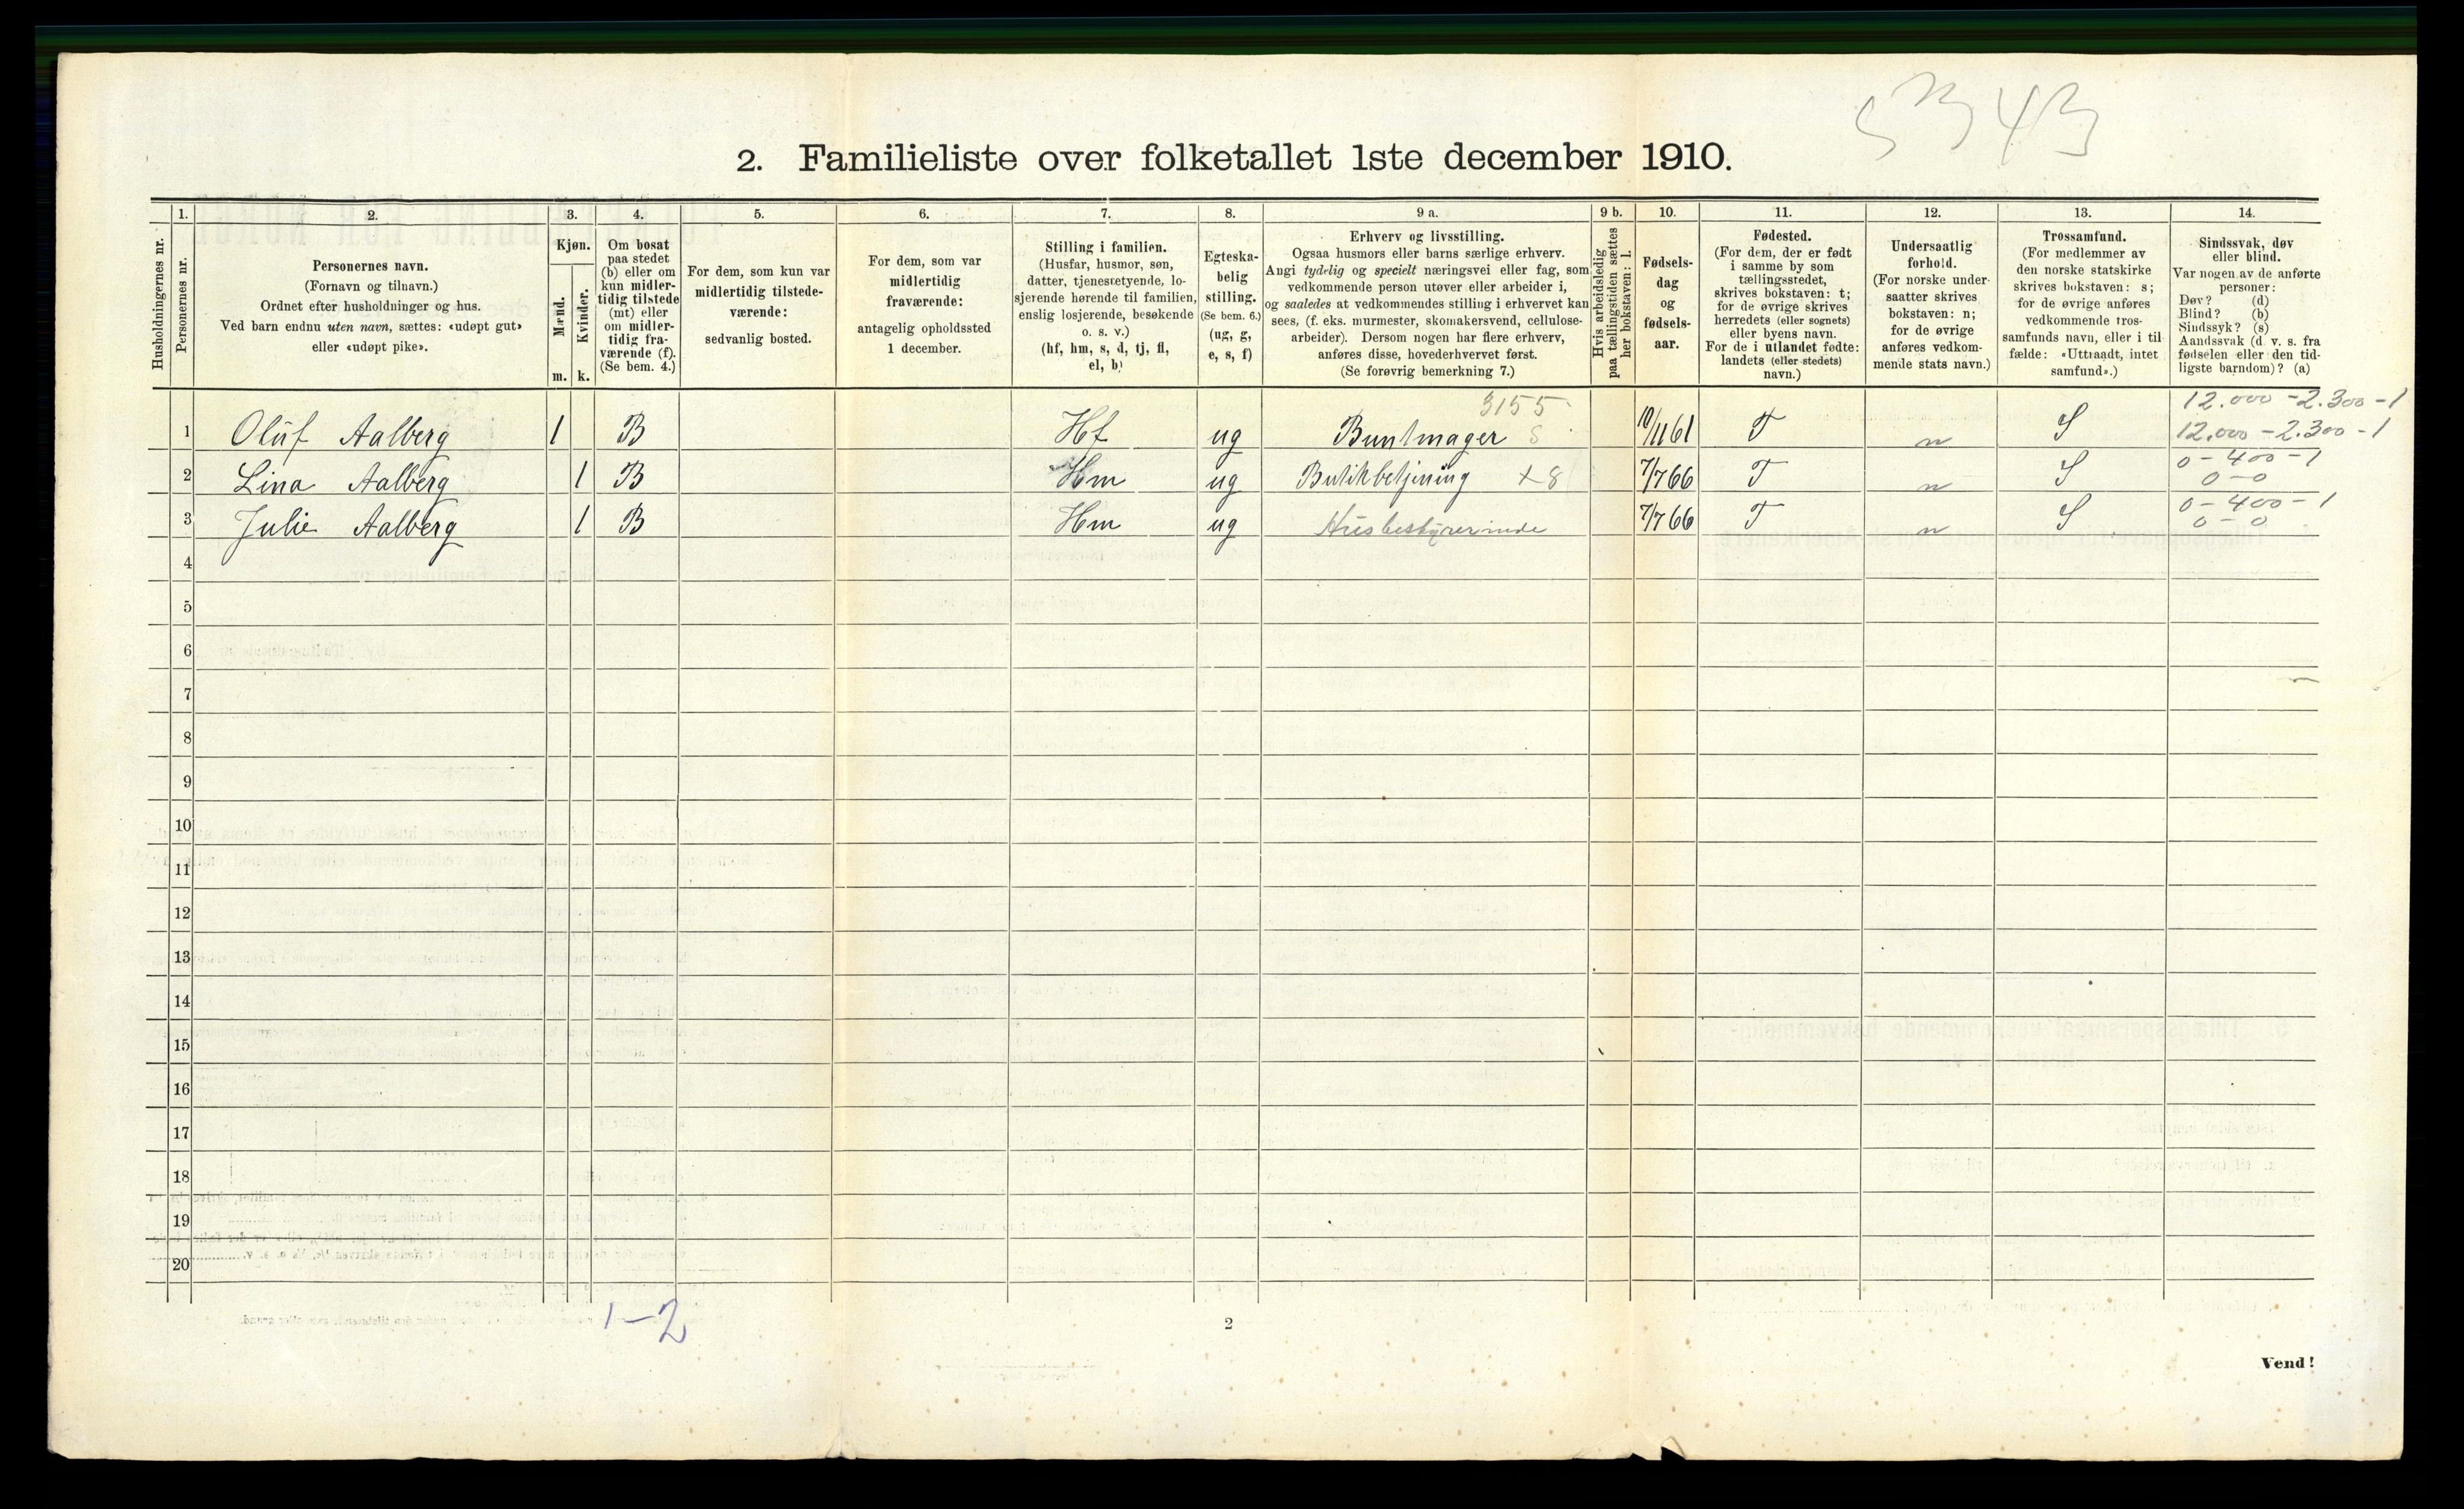 5343
2. Familieliste over folketallet 1ste december 1910.
Husholdningernes nr.
1.
Personernes nr.
2.
Personernes navn.
(Fornavn og tilnavn.)
Ordnet efter husholdninger og hus.
Ved barn endnu uten navn, sættes: «udøpt gut»
eller «udøpt pike».
3.
Kjøn.
Mænd.
m.
Kvinder.
k.
4.
Om bosat
paa stedet
(b) eller om
kun midler-
tidig tilstede
(mt) eller
om midler-
tidig fra-
værende (f).
(Se bem. 4.)
5.
For dem, som kun var
midlertidig tilstede-
værende:
sedvanlig bosted.
6.
For dem, som var
midlertidig
fraværende:
antagelig opholdssted
1 december.
7.
Stilling i familien.
(Husfar, husmor, søn,
datter, tjenestetyende, lo-
sjerende hørende til familien,
enslig losjerende, besøkende
o. s. v.)
(hf, hm, s, d, tj, fl,
el, b)
8.
Egteska-
belig
stilling.
(Se bem. 6.)
(ug, g,
e, s, f)
9 a.
Erhverv og livsstilling.
Ogsaa husmors eller barns særlige erhverv.
Angi tydelig og specielt næringsvei eller fag, som
vedkommende person utøver eller arbeider i,
og saaledes at vedkommendes stilling i erhvervet kan
sees, (f. eks. murmester, skomakersvend, cellulose-
arbeider). Dersom nogen har flere erhverv,
anføres disse, hovederhvervet først.
(Se forøvrig bemerkning 7.)
9 b.
Hvis arbeidsledig
paa tællingstiden sættes
her bokstaven: l.
10.
Fødsels-
dag
og
fødsels-
aar.
11.
Fødested.
(For dem, der er født
i samme by som
tællingsstedet,
skrives bokstaven: t;
for de øvrige skrives
herredets (eller sognets)
eller byens navn.
For de i utlandet fødte:
landets (eller stedets)
navn.)
12.
Undersaatlig
forhold.
(For norske under-
saatter skrives
bokstaven: n;
for de øvrige
anføres vedkom-
mende stats navn.)
13.
Trossamfund.
(For medlemmer av
den norske statskirke
skrives bokstaven: s;
for de øvrige anføres
vedkommende tros-
samfunds navn, eller i til-
fælde: «Uttraadt, intet
samfund».)
14.
Sindssvak, døv
eller blind.
Var nogen av de anførte
personer:
Døv? (d)
Blind? (b)
Sindssyk? (s)
Aandssvak (d. v. s. fra
fødselen eller den tid-
ligste barndom)? (a)
3155 12.000 - 2.300 - 1
1 Oluf Aalberg 1 B Hf ug Buntmager S 10/11 61 T n S 12.000 - 2.300 - 1
0 - 400 - 1
2 Lina Aalberg 1 B Hm ug Butikbetjening +8 7/7 66 T n S 0 - 0
0 - 400 - 1
3 Julie Aalberg 1 B Hm ug Husbestyrerinde 7/7 66 T n S 0 - 0
4
5
6
7
8
9
10
11
12
13
14
15
16
17
18
19
20
1-2
2
Vend!